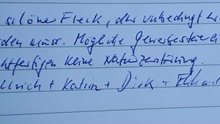 schöner Fleck, der unbedingt
den muss. Mögliche Gewerbe
rechtfertigen keine Naturzerstörung.
Ulrich + Katrin + Dirk +